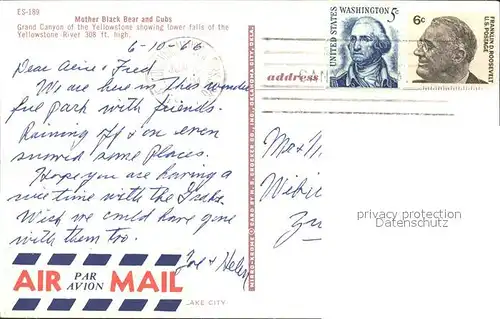 ES-189
Mother Black Bear and Cubs
Grand Canyon of the Yellowstone showing lower falls of the
Yellowstone River 308 ft. high.
6-10-66
Dear & Fred
We are here in this wonder
ful park with friends.
Raining off & on even
snowed some places.
Hope you are having a
nice time with the
Wish we could have gone
with them too.
& Helen
AIR PAR AVION MAIL
LAKE CITY
UNITED STATES
WASHINGTON 5c
6c
FRANKLIN D. ROOSEVELT
U.S. POSTAGE
address
privacy protection
Datenschutz